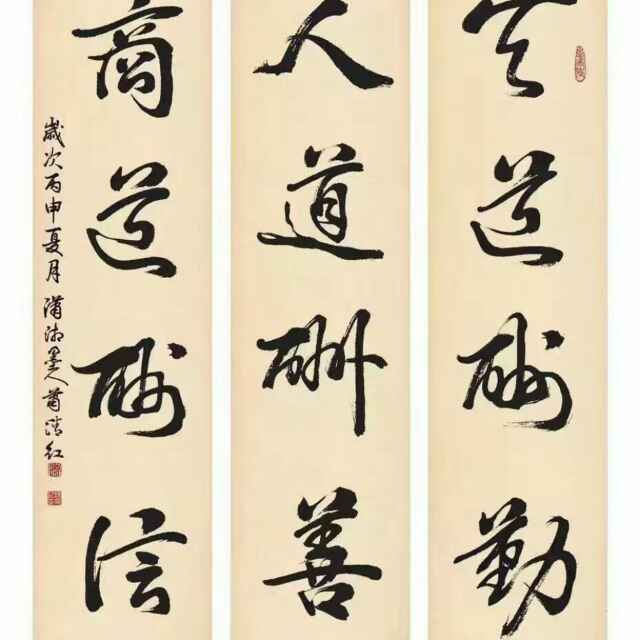 天道酬勤
人道酬善
商道酬信
歲次丙申夏月 瀟湘墨人